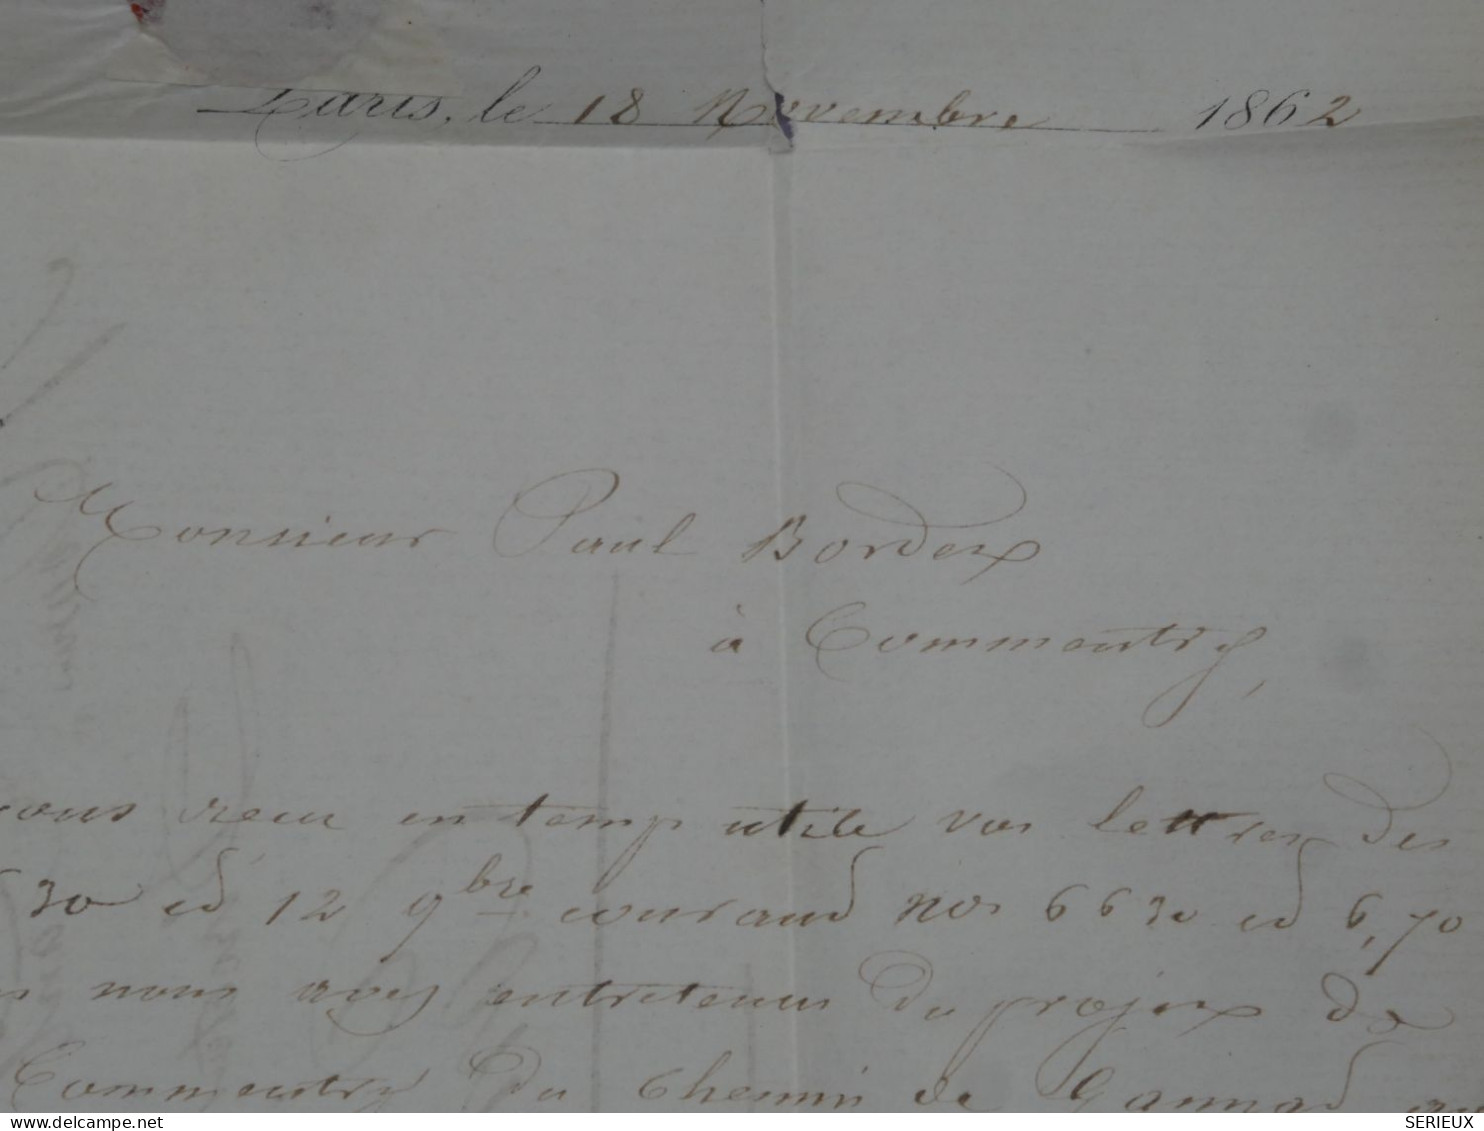 Paris, le 18 Novembre 1862
Monsieur Paul Bordex
à Commentry,
vous reçu en temp utile vos lettres des
30 et 12 9bre courant nos 6630 et 6,70
nous avez entretenus du projex de
Commentry du Chemin de Gannat au
SERIEUX